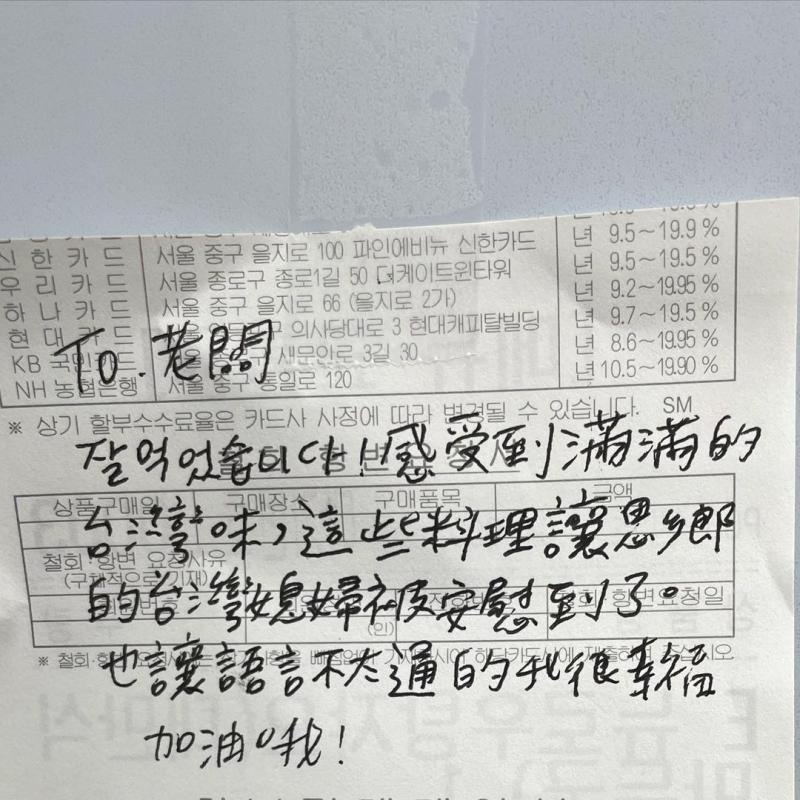 신한카드 서울 중구 을지로 100 파인에비뉴 신한카드 년 9.5~19.9 %
우리카드 서울 종로구 종로1길 50 더케이트윈타워 년 9.5~19.5 %
하나카드 서울 중구 을지로 66 (을지로 2가) 년 9.2~19.95 %
현대카드 의사당대로 3 현대캐피탈빌딩 년 9.7~19.5 %
KB 국민카드 새문안로 3길 30 년 8.6~19.95 %
NH 농협은행 서울 중구 통일로 120 년 10.5~19.90 %
To. 老闆
※ 상기 할부수수료율은 카드사 사정에 따라 변경될 수 있습니다. SM
잘 먹었습니다! 感受到滿滿的
상품구매일 구매장소 구매품목 금액
台灣味，這些料理讓思鄉
철회·항변 요청사유
(구체적으로 기재)
的台灣媳婦被安慰到了。
항변요청일
(인)
也讓語言不太通的我很幸福
加油哦!